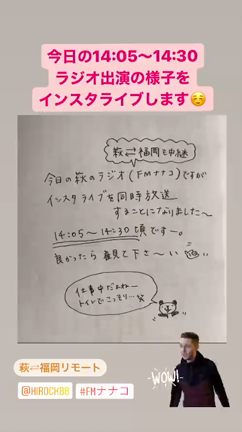 今日の14:05〜14:30
ラジオ出演の様子を
インスタライブします☺️
萩⇄福岡を中継
今日の萩のラジオ(FMナナコ)ですが
インスタライブを同時放送
することになりました〜
14:05〜14:30頃です〜。
良かったら観て下さ〜い
仕事中だよね〜
トイレでこっそり…
WOW!
萩⇄福岡リモート
@HIROCK88
#FMナナコ